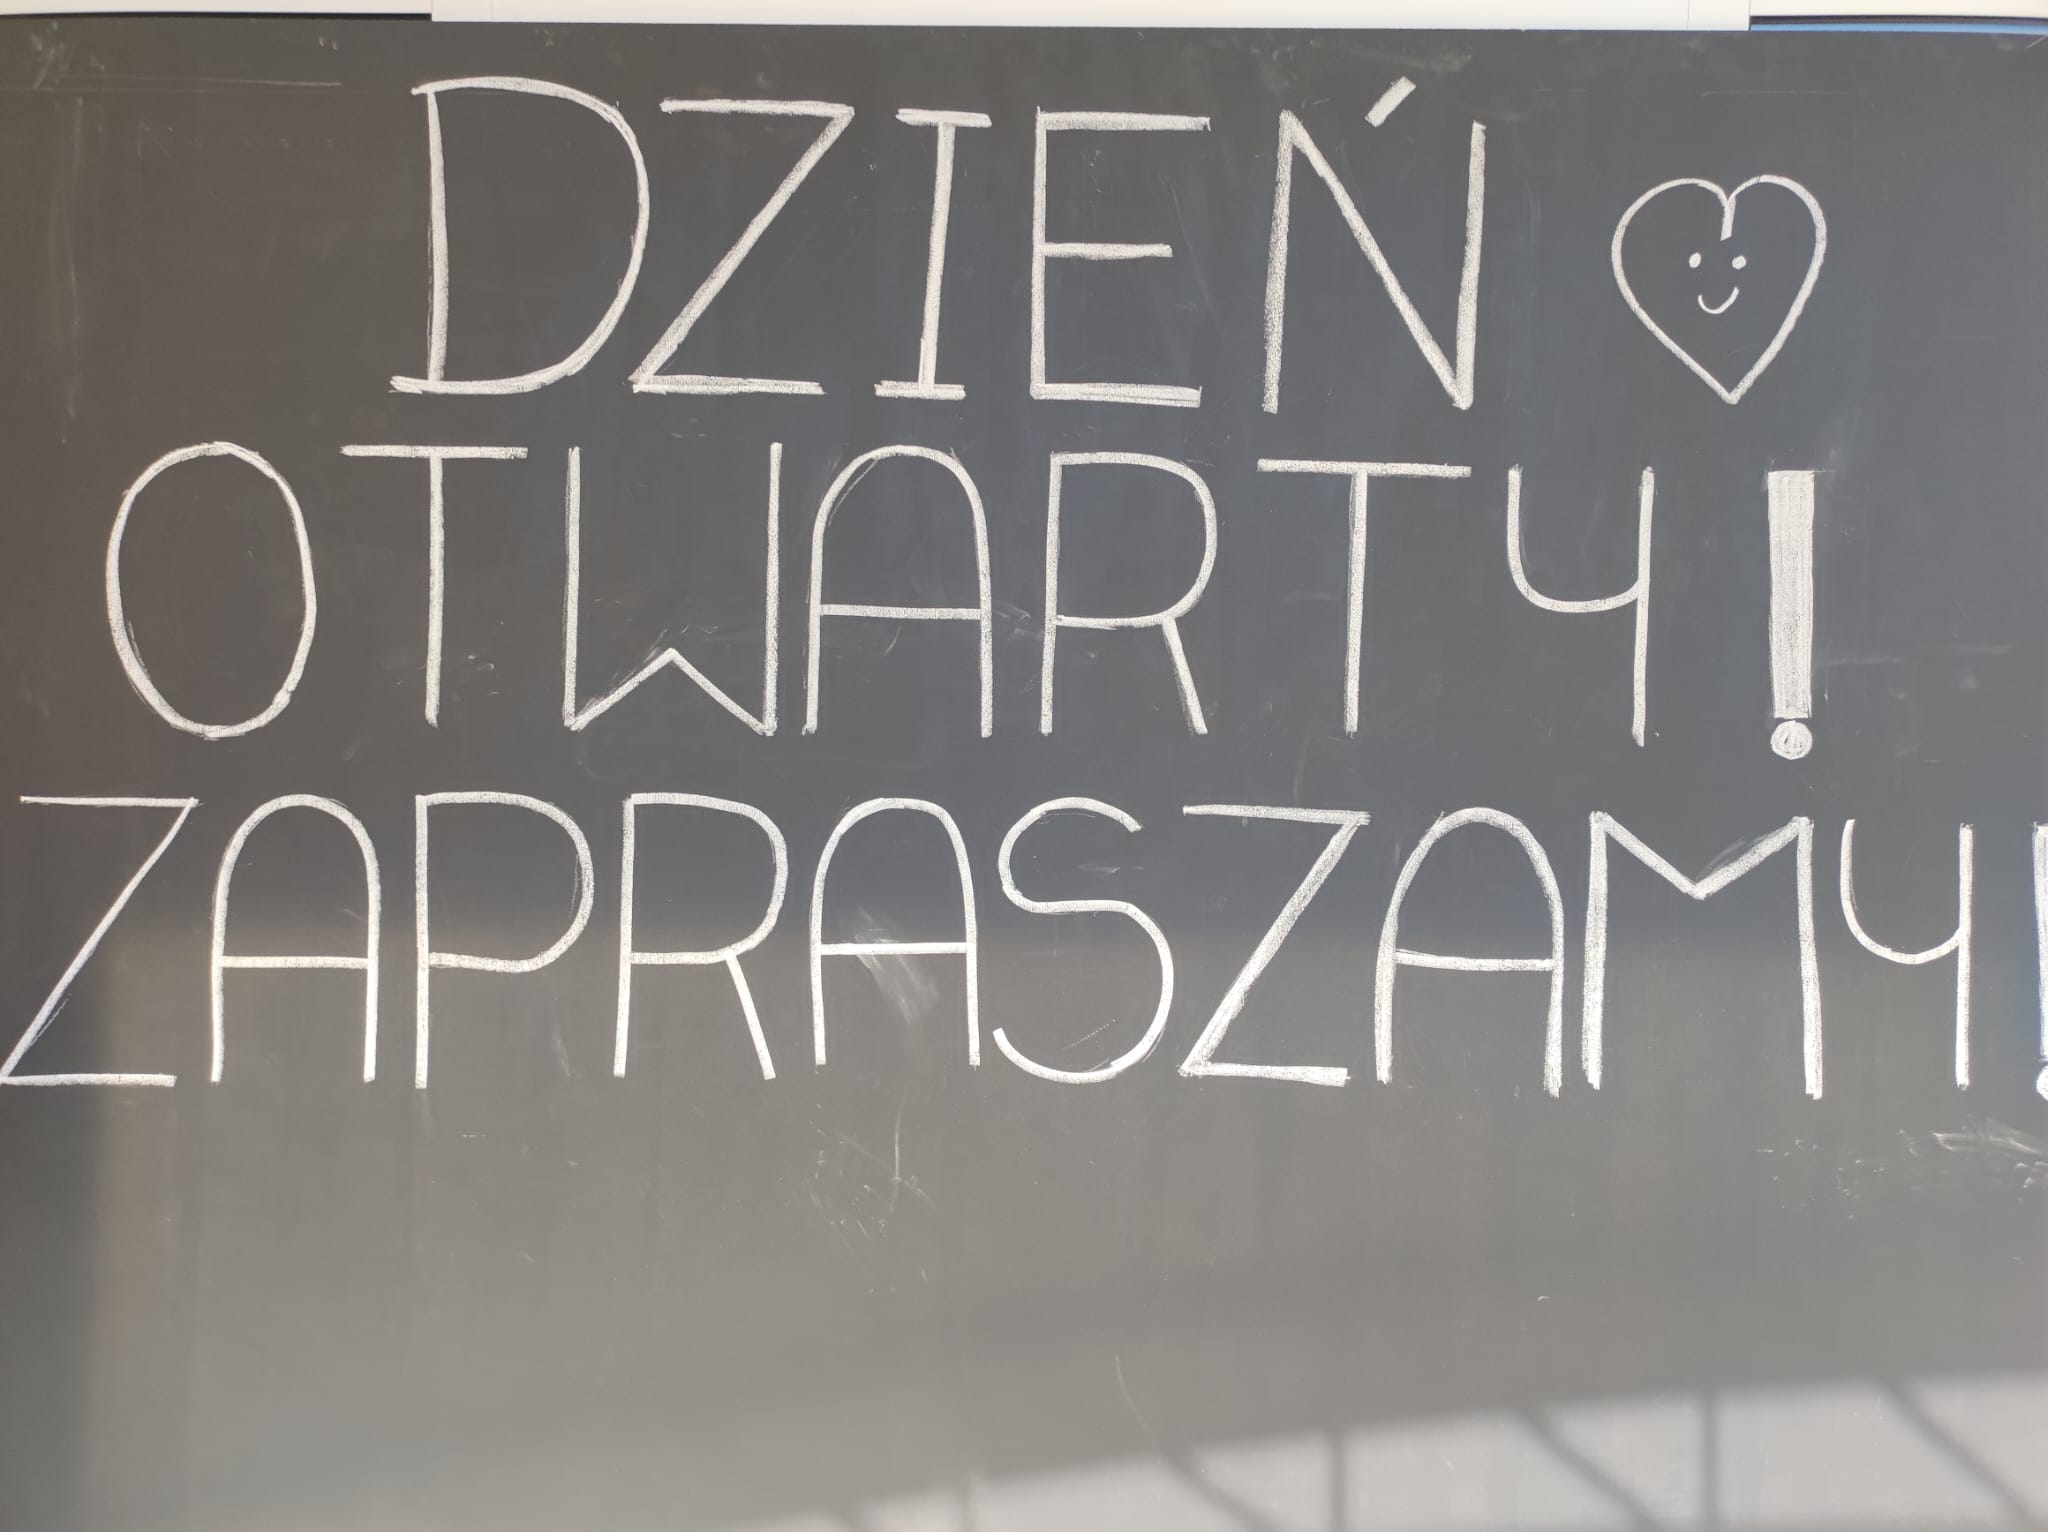 DZIEŃ
OTWARTY!
ZAPRASZAMY!